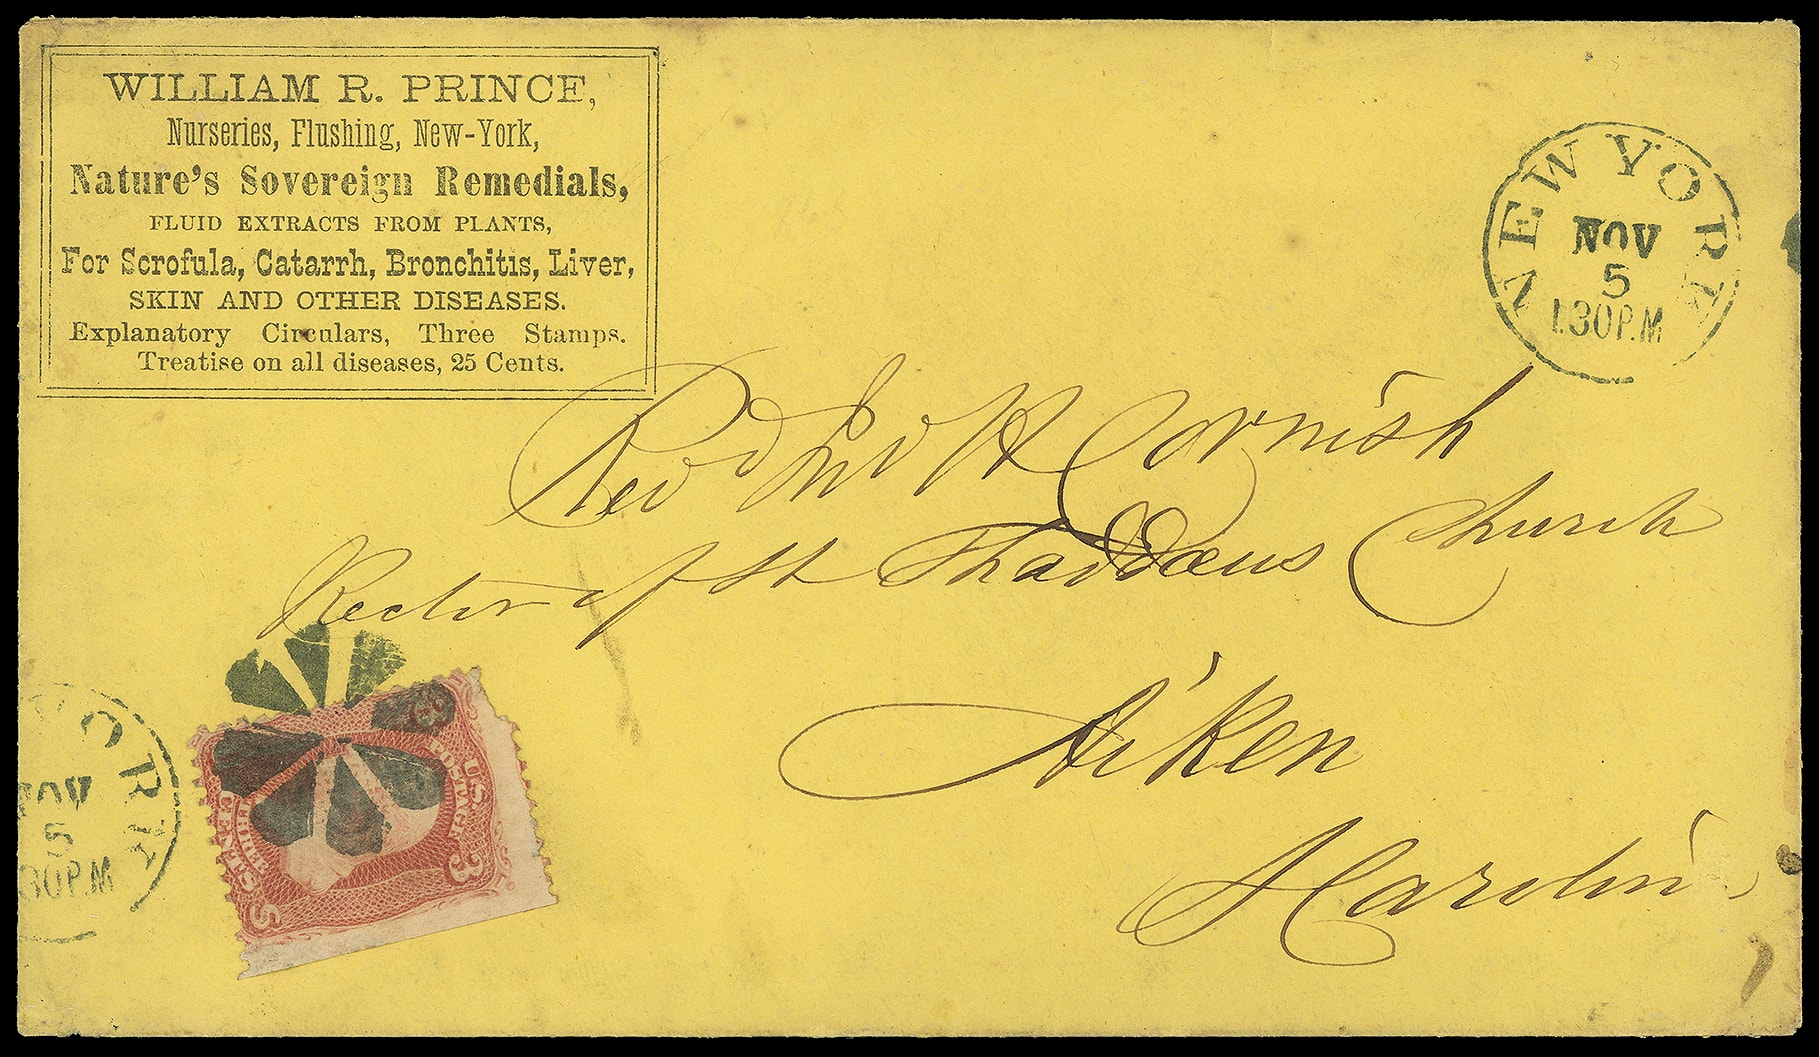 WILLIAM R. PRINCE,
Nurseries, Flushing, New-York,
Nature's Sovereign Remedials,
FLUID EXTRACTS FROM PLANTS,
For Scrofula, Catarrh, Bronchitis, Liver,
SKIN AND OTHER DISEASES.
Explanatory Circulars, Three Stamps.
Treatise on all diseases, 25 Cents.
NEW YORK
NOV
5
1.30P.M
Rev H Cornish
Rector of St Thaddeus Church
Aiken
S Carolin
U.S. POSTAGE
3
CENTS
YORK
NOV
5
30P.M